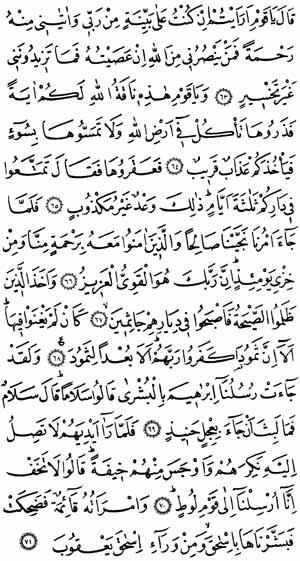 قَالَ يَا قَوْمِ اَرَاَيْتُمْ اِنْ كُنْتُ عَلٰى بَيِّنَةٍ مِنْ رَبّ۪ى وَاٰتٰين۪ى مِنْهُ
رَحْمَةً فَمَنْ يَنْصُرُن۪ى مِنَ اللّٰهِ اِنْ عَصَيْتُهُ فَمَا تَز۪يدُونَن۪ى
غَيْرَ تَخْس۪يرٍ ﴿٦٣﴾ وَيَا قَوْمِ هٰذِه۪ نَاقَةُ اللّٰهِ لَكُمْ اٰيَةً
فَذَرُوهَا تَأْكُلْ ف۪ى اَرْضِ اللّٰهِ وَلَا تَمَسُّوهَا بِسُوٓءٍ
فَيَأْخُذَكُمْ عَذَابٌ قَر۪يبٌ ﴿٦٤﴾ فَعَقَرُوهَا فَقَالَ تَمَتَّعُوا
ف۪ى دَارِكُمْ ثَلٰثَةَ اَيَّامٍ ذٰلِكَ وَعْدٌ غَيْرُ مَكْذُوبٍ ﴿٦٥﴾ فَلَمَّا
جَٓاءَ اَمْرُنَا نَجَّيْنَا صَالِحًا وَالَّذ۪ينَ اٰمَنُوا مَعَهُ بِرَحْمَةٍ مِنَّا وَمِنْ
خِزْىِ يَوْمِئِذٍ اِنَّ رَبَّكَ هُوَ الْقَوِىُّ الْعَز۪يزُ ﴿٦٦﴾ وَاَخَذَ الَّذ۪ينَ
ظَلَمُوا الصَّيْحَةُ فَاَصْبَحُوا ف۪ى دِيَارِهِمْ جَاثِم۪ينَ ﴿٦٧﴾ كَاَنْ لَمْ يَغْنَوْا ف۪يهَا
اَلَٓا اِنَّ ثَمُودَا۬ كَفَرُوا رَبَّهُمْ اَلَا بُعْدًا لِثَمُودَ ﴿٦٨﴾ وَلَقَدْ
جَٓاءَتْ رُسُلُنَٓا اِبْرٰه۪يمَ بِالْبُشْرٰى قَالُوا سَلَامًا قَالَ سَلَامٌ
فَمَا لَبِثَ اَنْ جَٓاءَ بِعِجْلٍ حَن۪يذٍ ﴿٦٩﴾ فَلَمَّا رَآٰ اَيْدِيَهُمْ لَا تَصِلُ
اِلَيْهِ نَكِرَهُمْ وَاَوْجَسَ مِنْهُمْ خ۪يفَةً قَالُوا لَا تَخَفْ
اِنَّٓا اُرْسِلْنَٓا اِلٰى قَوْمِ لُوطٍ ﴿٧٠﴾ وَامْرَاَتُهُ قَٓائِمَةٌ فَضَحِكَتْ
فَبَشَّرْنَاهَا بِاِسْحٰقَ وَمِنْ وَرَٓاءِ اِسْحٰقَ يَعْقُوبَ ﴿٧١﴾